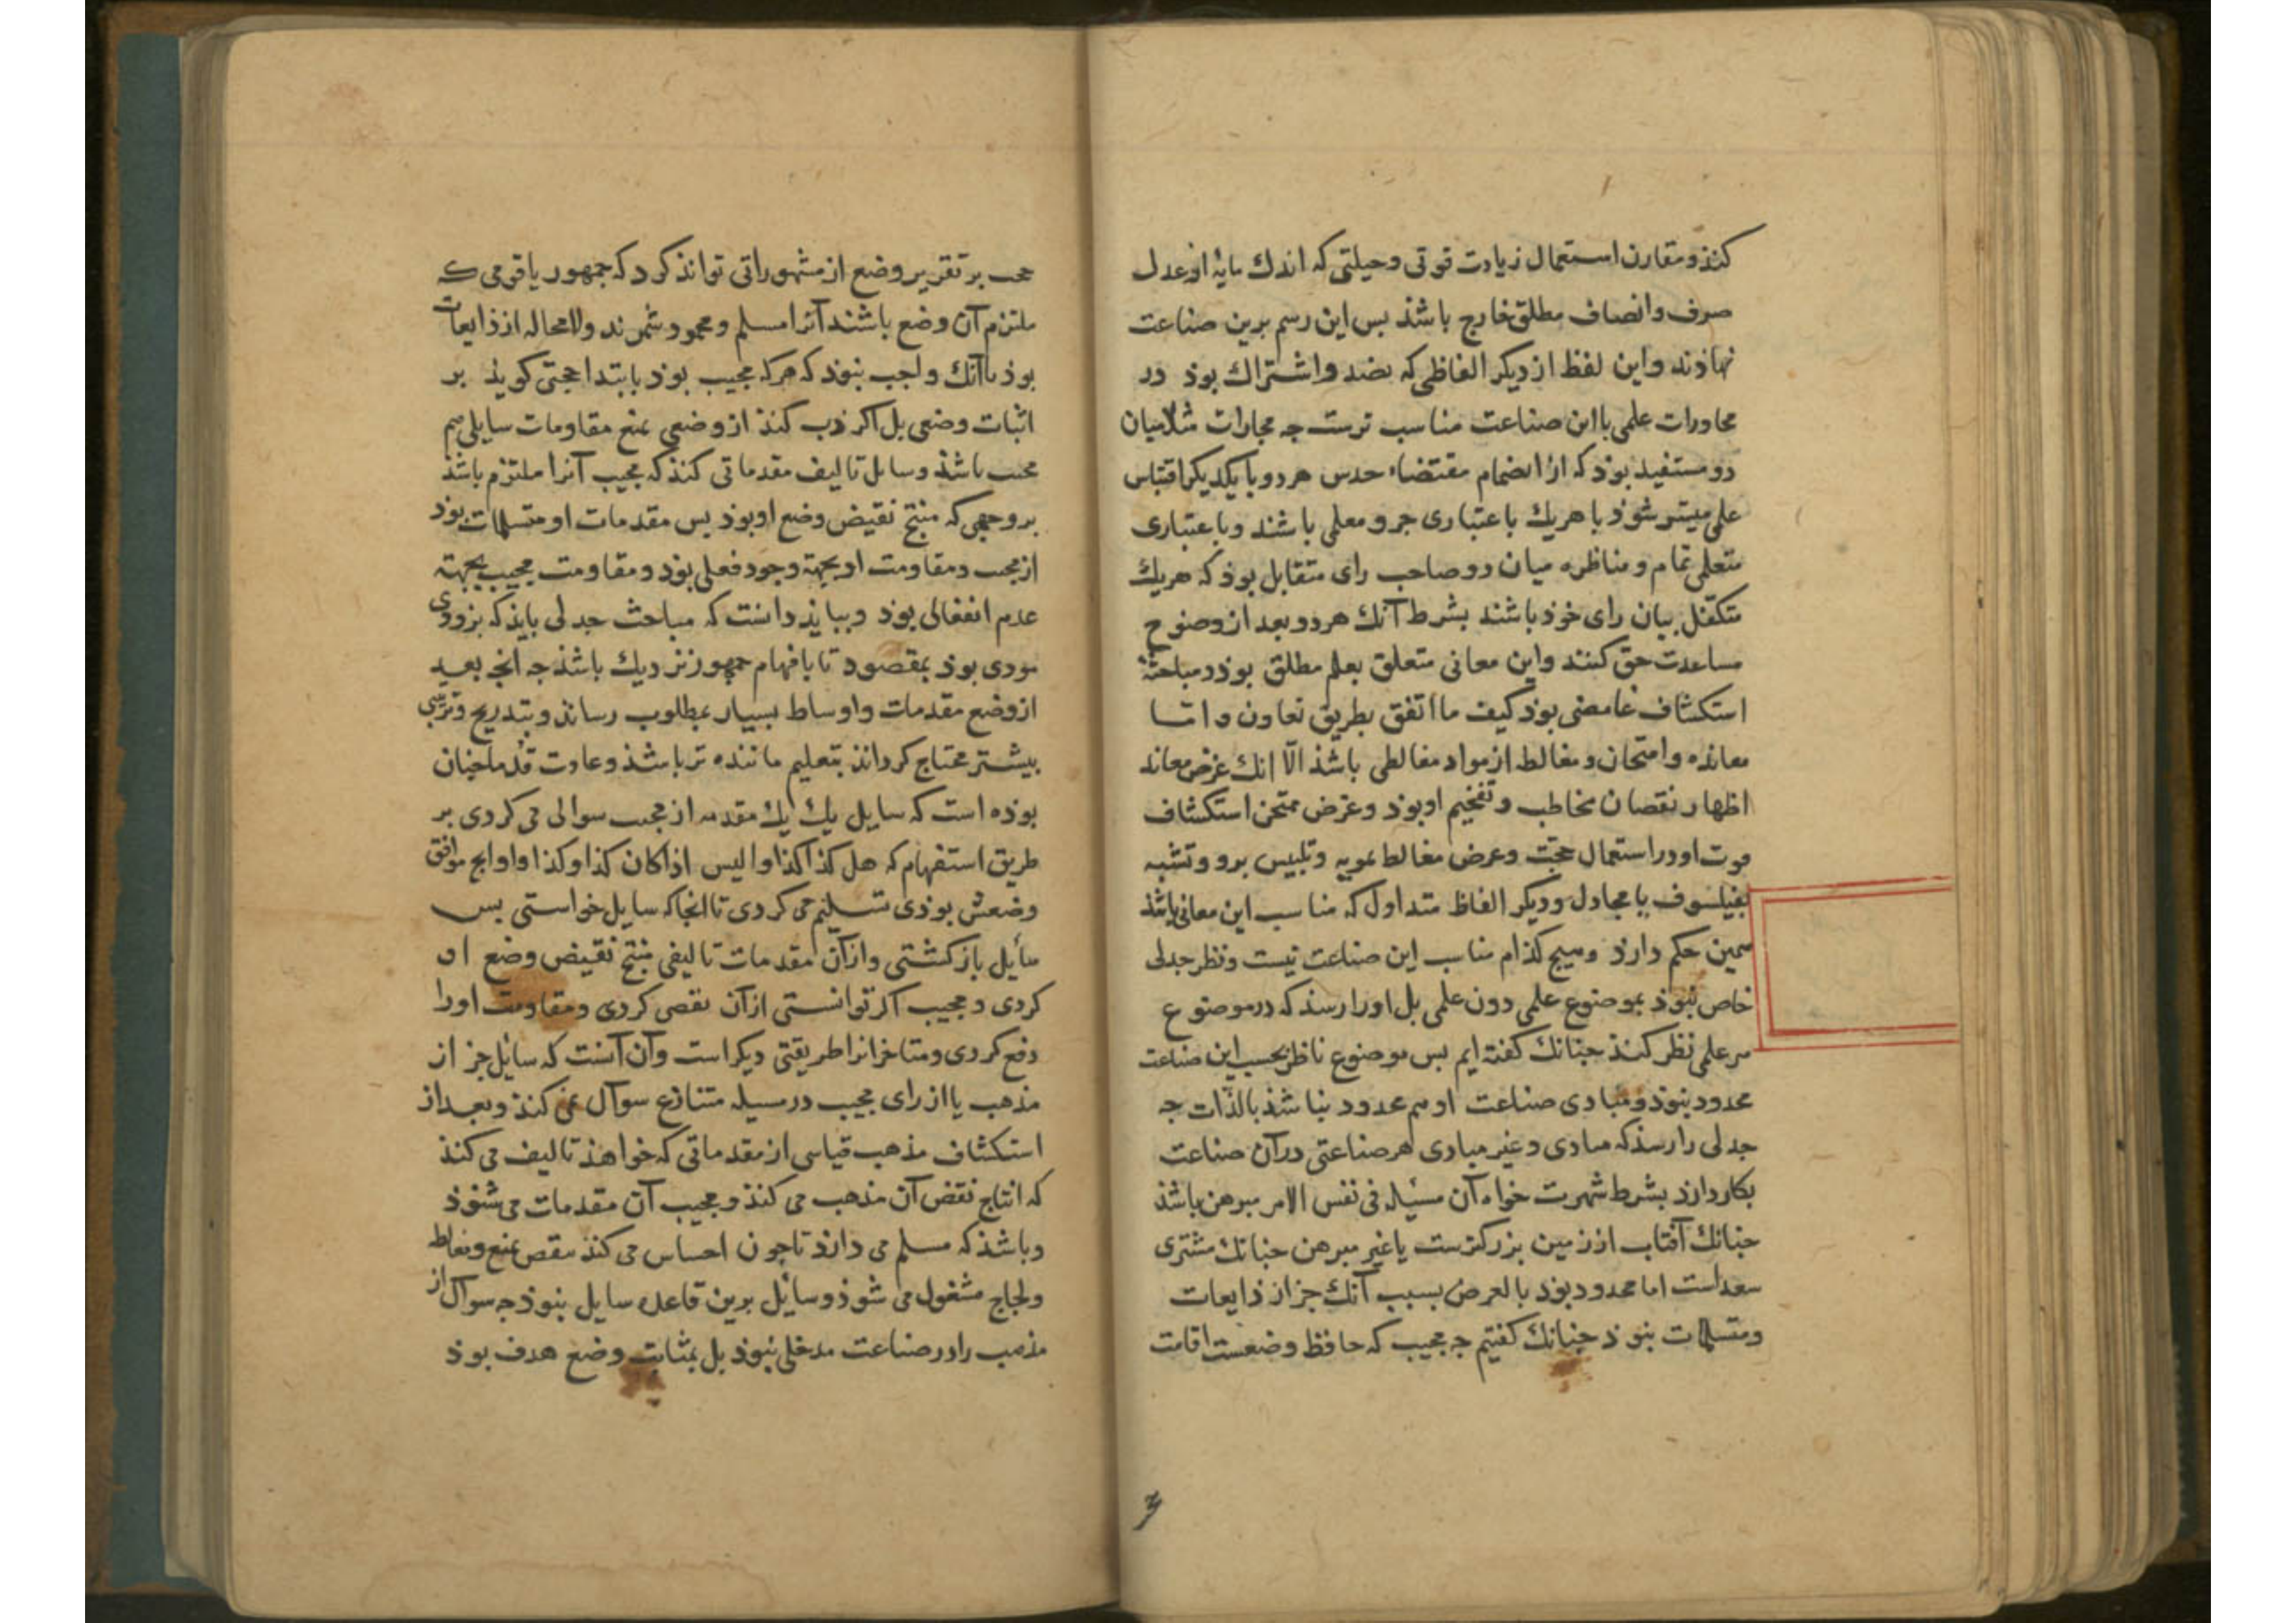 کند و مقارن استعمال زیادت قوتی و حیلتی که اندک مایۀ از عدل
صرف و انصاف مطلق خارج باشذ بس این رسم برین صناعت
نهاذند و این لفظ از دیکر الفاظی که بصدد اشتراک بوذ در
محاورات علمی با این صناعت مناسب ترست جه مجارات مثلا میان
دو مستفید بوذ که از انضمام مقتضاء حدس هر دو با یکدیکر اقتباس
علمی میسر شوذ با هریک باعتباری جزو معلمی باشند و باعتباری
متعلمی تمام و مناظره میان دو صاحب رای متقابل بوذ که هریک
متکفل بیان رای خوذ باشند بشرط آنک هر دو بعد از وضوح
مساعدت حق کنند و این معانی متعلق بعلم مطلق بوذ و مباحثۀ
استکشاف غامضی بوذ کیف ما اتفق بطریق تعاون و اما
معانده و امتحان و مغالط از مواد مغالطی باشذ الا انک غرض معاند
اظهار نقصان مخاطب و تفخیم او بوذ و غرض ممتحن استکشاف
قوت او در استعمال حجت و غرض مغالط تمویه و تلبیس برو و تشبه
بفیلسوف یا مجادل و دیکر الفاظ متداول که مناسب این معانی باشذ
همین حکم دارذ و هیج کذام مناسب این صناعت نیست و نظر جدلی
خاص نبوذ بموضوع علمی دون علمی بل او را رسذ که در موضوع
هر علمی نظر کنذ جنانک کفته ایم بس موضوع ناظر بحسب این صناعت
محدود نبوذ و مبادی صناعت او هم محدود نباشذ بالذات جه
جدلی را رسذ که مبادی و غیر مبادی هر صناعتی در آن صناعت
بکار دارذ بشرط شهرت خواه آن مسیله فی نفس الامر مبرهن باشذ
جنانک آفتاب از زمین بزرکترست یا غیر مبرهن جنانک مشتری
سعد است اما محدود بوذ بالعرض بسبب آنک جز از ذایعات
و متسلمات نبوذ جنانک کفتیم جه مجیب که حافظ وضعست اقامت
حجت بر تقریر وضع از مشهوراتی تواند کرد که جمهور یا قومی که
ملتزم آن وضع باشند آنرا مسلم و محمود شمرند و لامحاله از ذایعات
بوذ با آنک واجب نبوذ که هرکه مجیب بوذ بابتدا حجتی کویذ بر
اثبات وضعی بل اکر ذب کنذ از وضعی بمنع مقاومات سایل هم
مجیب باشذ و سایل تالیف مقدماتی کنذ که مجیب آنرا ملتزم باشذ
بر وجهی که منتج نقیض وضع او بوذ بس مقدمات او متسلمات بوذ
از مجیب و مقاومت او بجهة وجود فعلی بوذ و مقاومت مجیب بجهة
عدم انفعالی بوذ و ببایذ دانست که مباحث جدلی بایذ که بزودی
مودی بوذ بمقصود تا بافهام جمهور نزدیک باشذ جه انجه بعد
از وضع مقدمات و اوساط بسیار بمطلوب رساند و بتدریج و ترتیبی
بیشتر محتاج کرداند بتعلیم ماننده تر باشذ و عادت قدما جنان
بوذه است که سایل یک یک مقدمه از مجیب سوال می کردی بر
طریق استفهام که هل کذا کذا و الیس اذا کان کذا و کذا و او ابج موافق
وضعش بوذی تسلیم می کردی تا انجا که سایل خواستی بس
سایل باز کشتی و از آن مقدمات تالیفی منتج نقیض وضع او
کردی و مجیب اکر توانستی از آن تفصی کردی و مقاومت او را
دفع کردی و متاخرانرا طریقتی دیکر است و آن آنست که سایل جز از
مذهب یا از رای مجیب در مسیله متنازع سوال نمی کنذ و بعد از
استکشاف مذهب قیاسی از مقدماتی که خواهذ تالیف می کنذ
که انتاج نقض آن مذهب می کنذ و مجیب آن مقدمات می شنوذ
و باشذ که مسلم می دارذ تا جون احساس می کنذ بنقض بمنع و مغالطه
و لجاج مشغول می شوذ و سایل برین قاعده سایل نبوذ جه سوال از
مذهب را در صناعت مدخلی نبوذ بل بمثابت وضع هدف بوذ